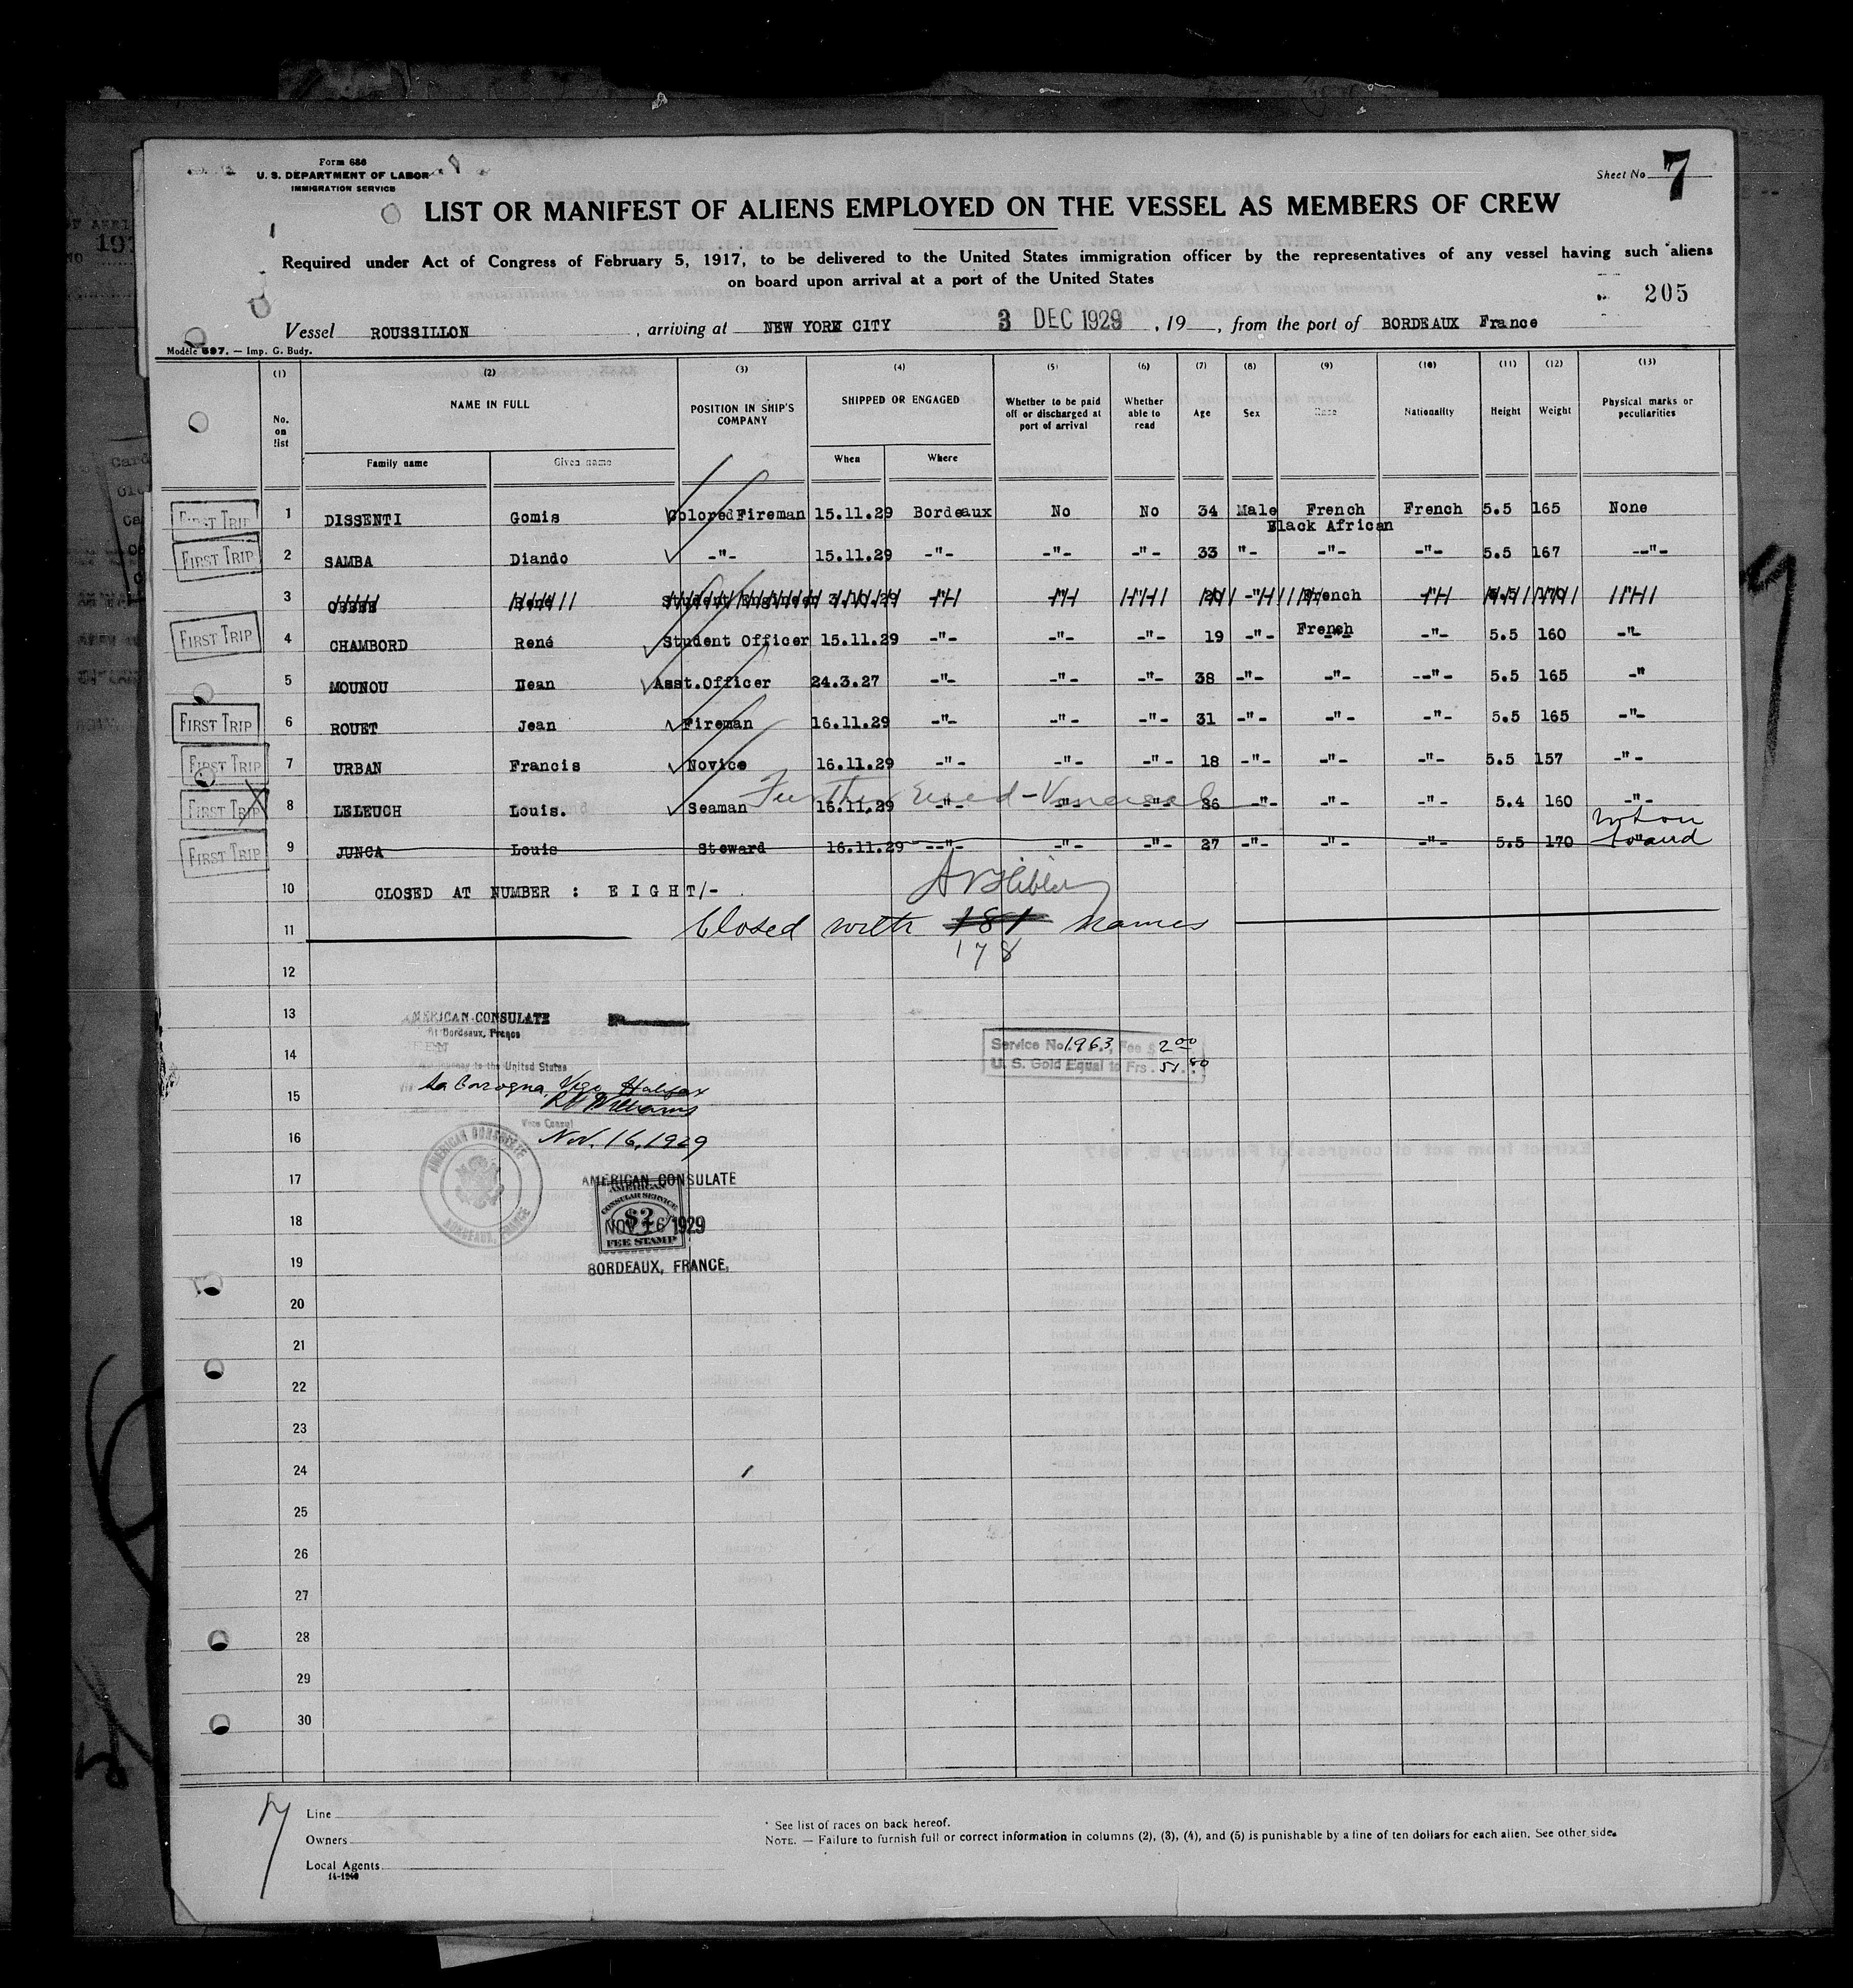 Form 686
U. S. DEPARTMENT OF LABOR
IMMIGRATION SERVICE
Sheet No 7
LIST OR MANIFEST OF ALIENS EMPLOYED ON THE VESSEL AS MEMBERS OF CREW
Required under Act of Congress of February 5, 1917, to be delivered to the United States immigration officer by the representatives of any vessel having such aliens
on board upon arrival at a port of the United States
205
Vessel ROUSSILLON , arriving at NEW YORK CITY 3 DEC 1929 , 19 , from the port of BORDEAUX France
Modèle 597. — Imp. G. Budy.
(1) (2) (3) (4) (5) (6) (7) (8) (9) (10) (11) (12) (13)
No. on list NAME IN FULL POSITION IN SHIP'S COMPANY SHIPPED OR ENGAGED Whether to be paid off or discharged at port of arrival Whether able to read Age Sex Race Nationality Height Weight Physical marks or peculiarities
Family name Given name When Where
FIRST TRIP 1 DISSENTI Gomis Colored Fireman 15.11.29 Bordeaux No No 34 Male French French 5.5 165 None
Black African
FIRST TRIP 2 SAMBA Diando -"- 15.11.29 -"- -"- -"- 33 "- -"- -"- 5.5 167 --"-
3 René Student Engineer -"- French
FIRST TRIP 4 CHAMBORD René Student Officer 15.11.29 -"- -"- -"- 19 -"- French -"- 5.5 160 -"-
5 MOUNOU Asst.Officer 24.3.27 -"- -"- -"- 38 -"- -"- --"- 5.5 165 -"
FIRST TRIP 6 ROUET Jean Fireman 16.11.29 -"- -"- -"- 31 -"- -"- -"- 5.5 165 -"-
FIRST TRIP 7 URBAN Francis Novice 16.11.29 -"- -"- -"- 18 -"- -"- -"- 5.5 157 -"-
FIRST TRIP 8 LELEUCH Louis. Seaman 16.11.29 -"- -"- -"- 36 -"- -"- -"- 5.4 160 -"-
FIRST TRIP 9 JUNCA Louis Steward 16.11.29 --"- -"- -"- 27 -"- -"- -"- 5.5 170
10 CLOSED AT NUMBER : E I G H T/-
11 Closed with 181 names
178
12
13 AMERICAN CONSULATE
At Bordeaux, France
14 Service No. 1963, Fee $ 2 00
U. S. Gold Equal to Frs. 51.80
to the United States
15 La Corogna, Vigo, Halifax
Williams
Vice Consul
16 Nov. 16, 1929
AMERICAN CONSULATE
BORDEAUX, FRANCE
17 AMERICAN CONSULATE
AMERICAN
CONSULAR SERVICE
$2
18 NOV 16 1929
FEE STAMP
19 BORDEAUX, FRANCE.
20
21
22
23
24
25
26
27
28
29
30
7
Line
Owners
Local Agents
14-1240
* See list of races on back hereof.
NOTE. — Failure to furnish full or correct information in columns (2), (3), (4), and (5) is punishable by a fine of ten dollars for each alien. See other side.